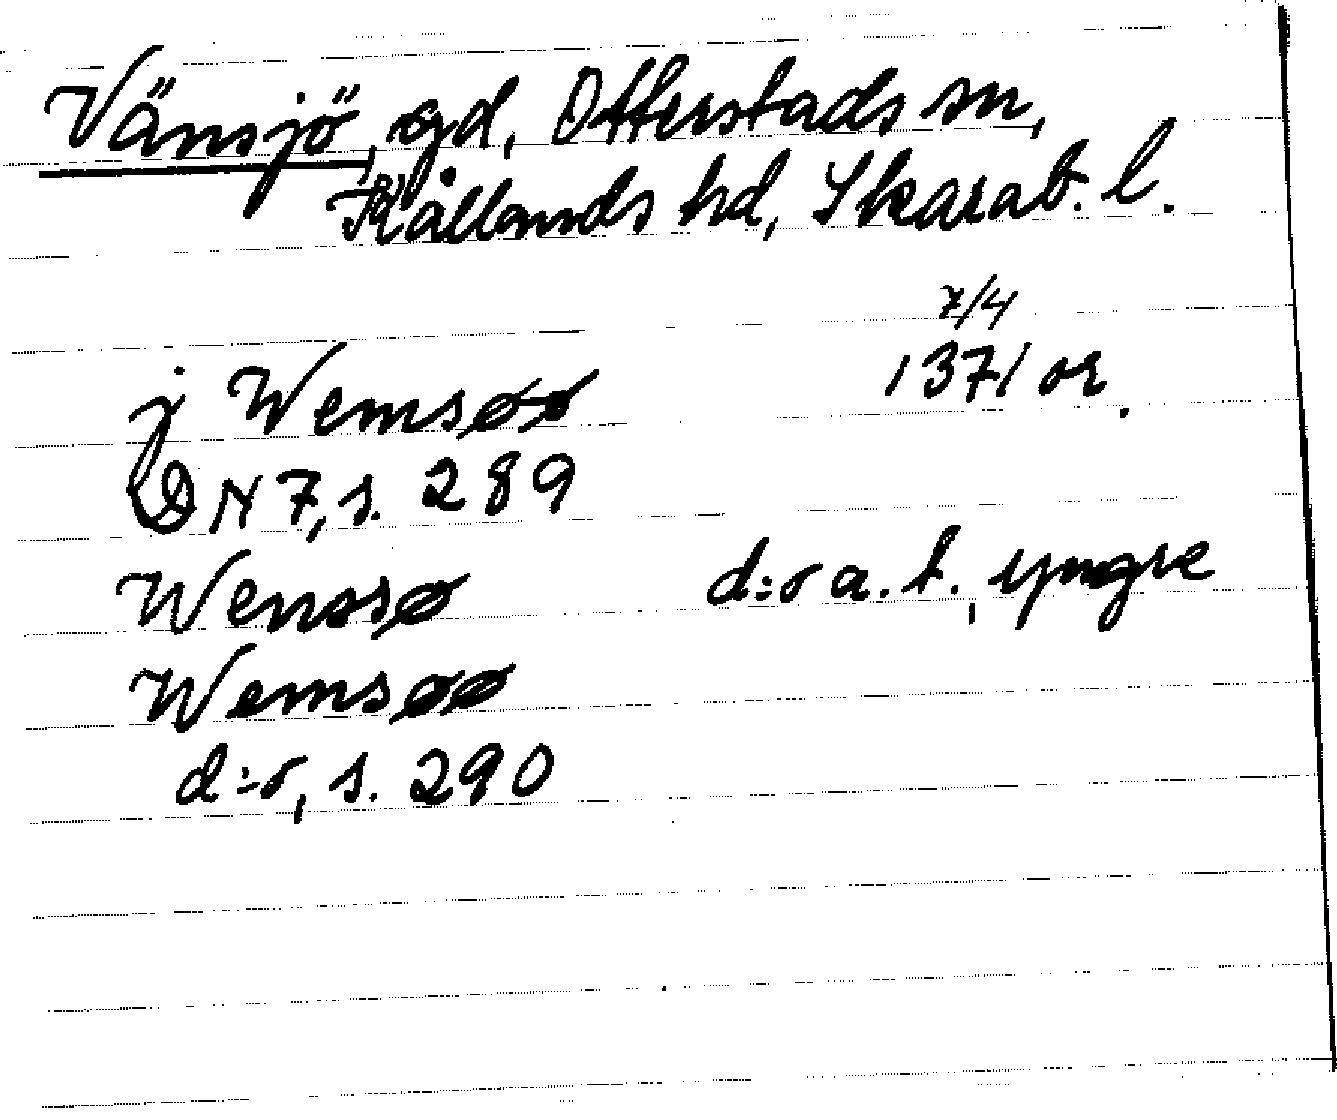 Vänsjö, gd, Otterstads sn,
Kållands hd, Skarab. l.
7/4
j Wemsøø 1371 or.
DN 7, s. 289
Wenssø d:o a. t., yngre
Wemsøø
d:o, s. 290